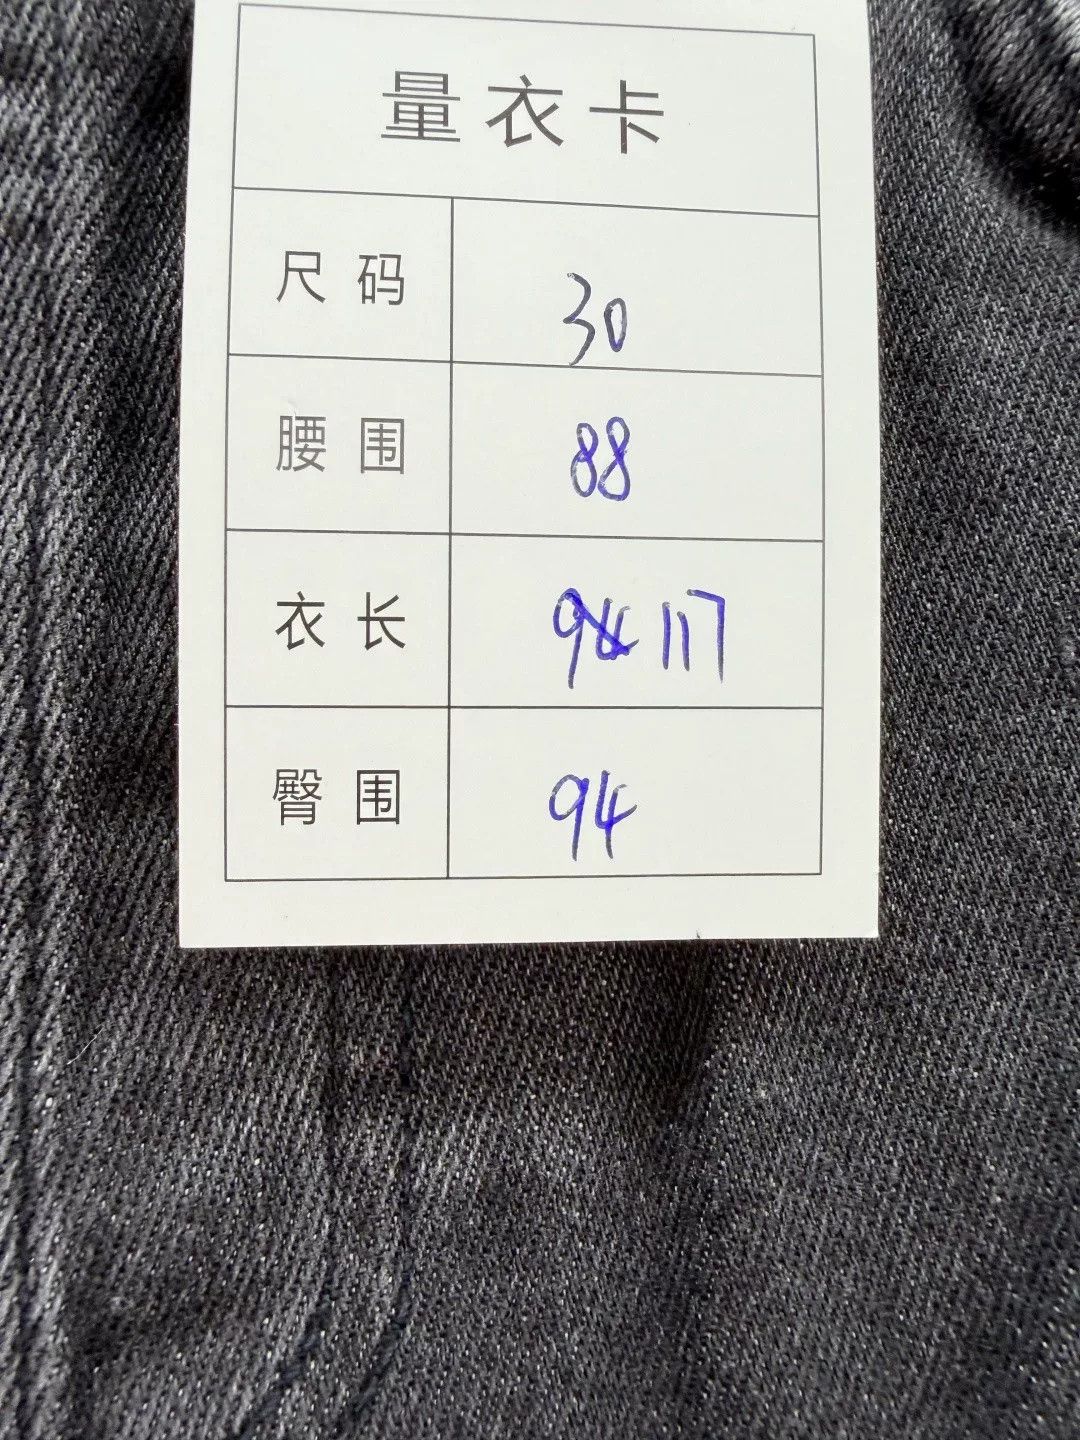 量衣卡
尺码 30
腰围 88
衣长 94 117
臀围 94